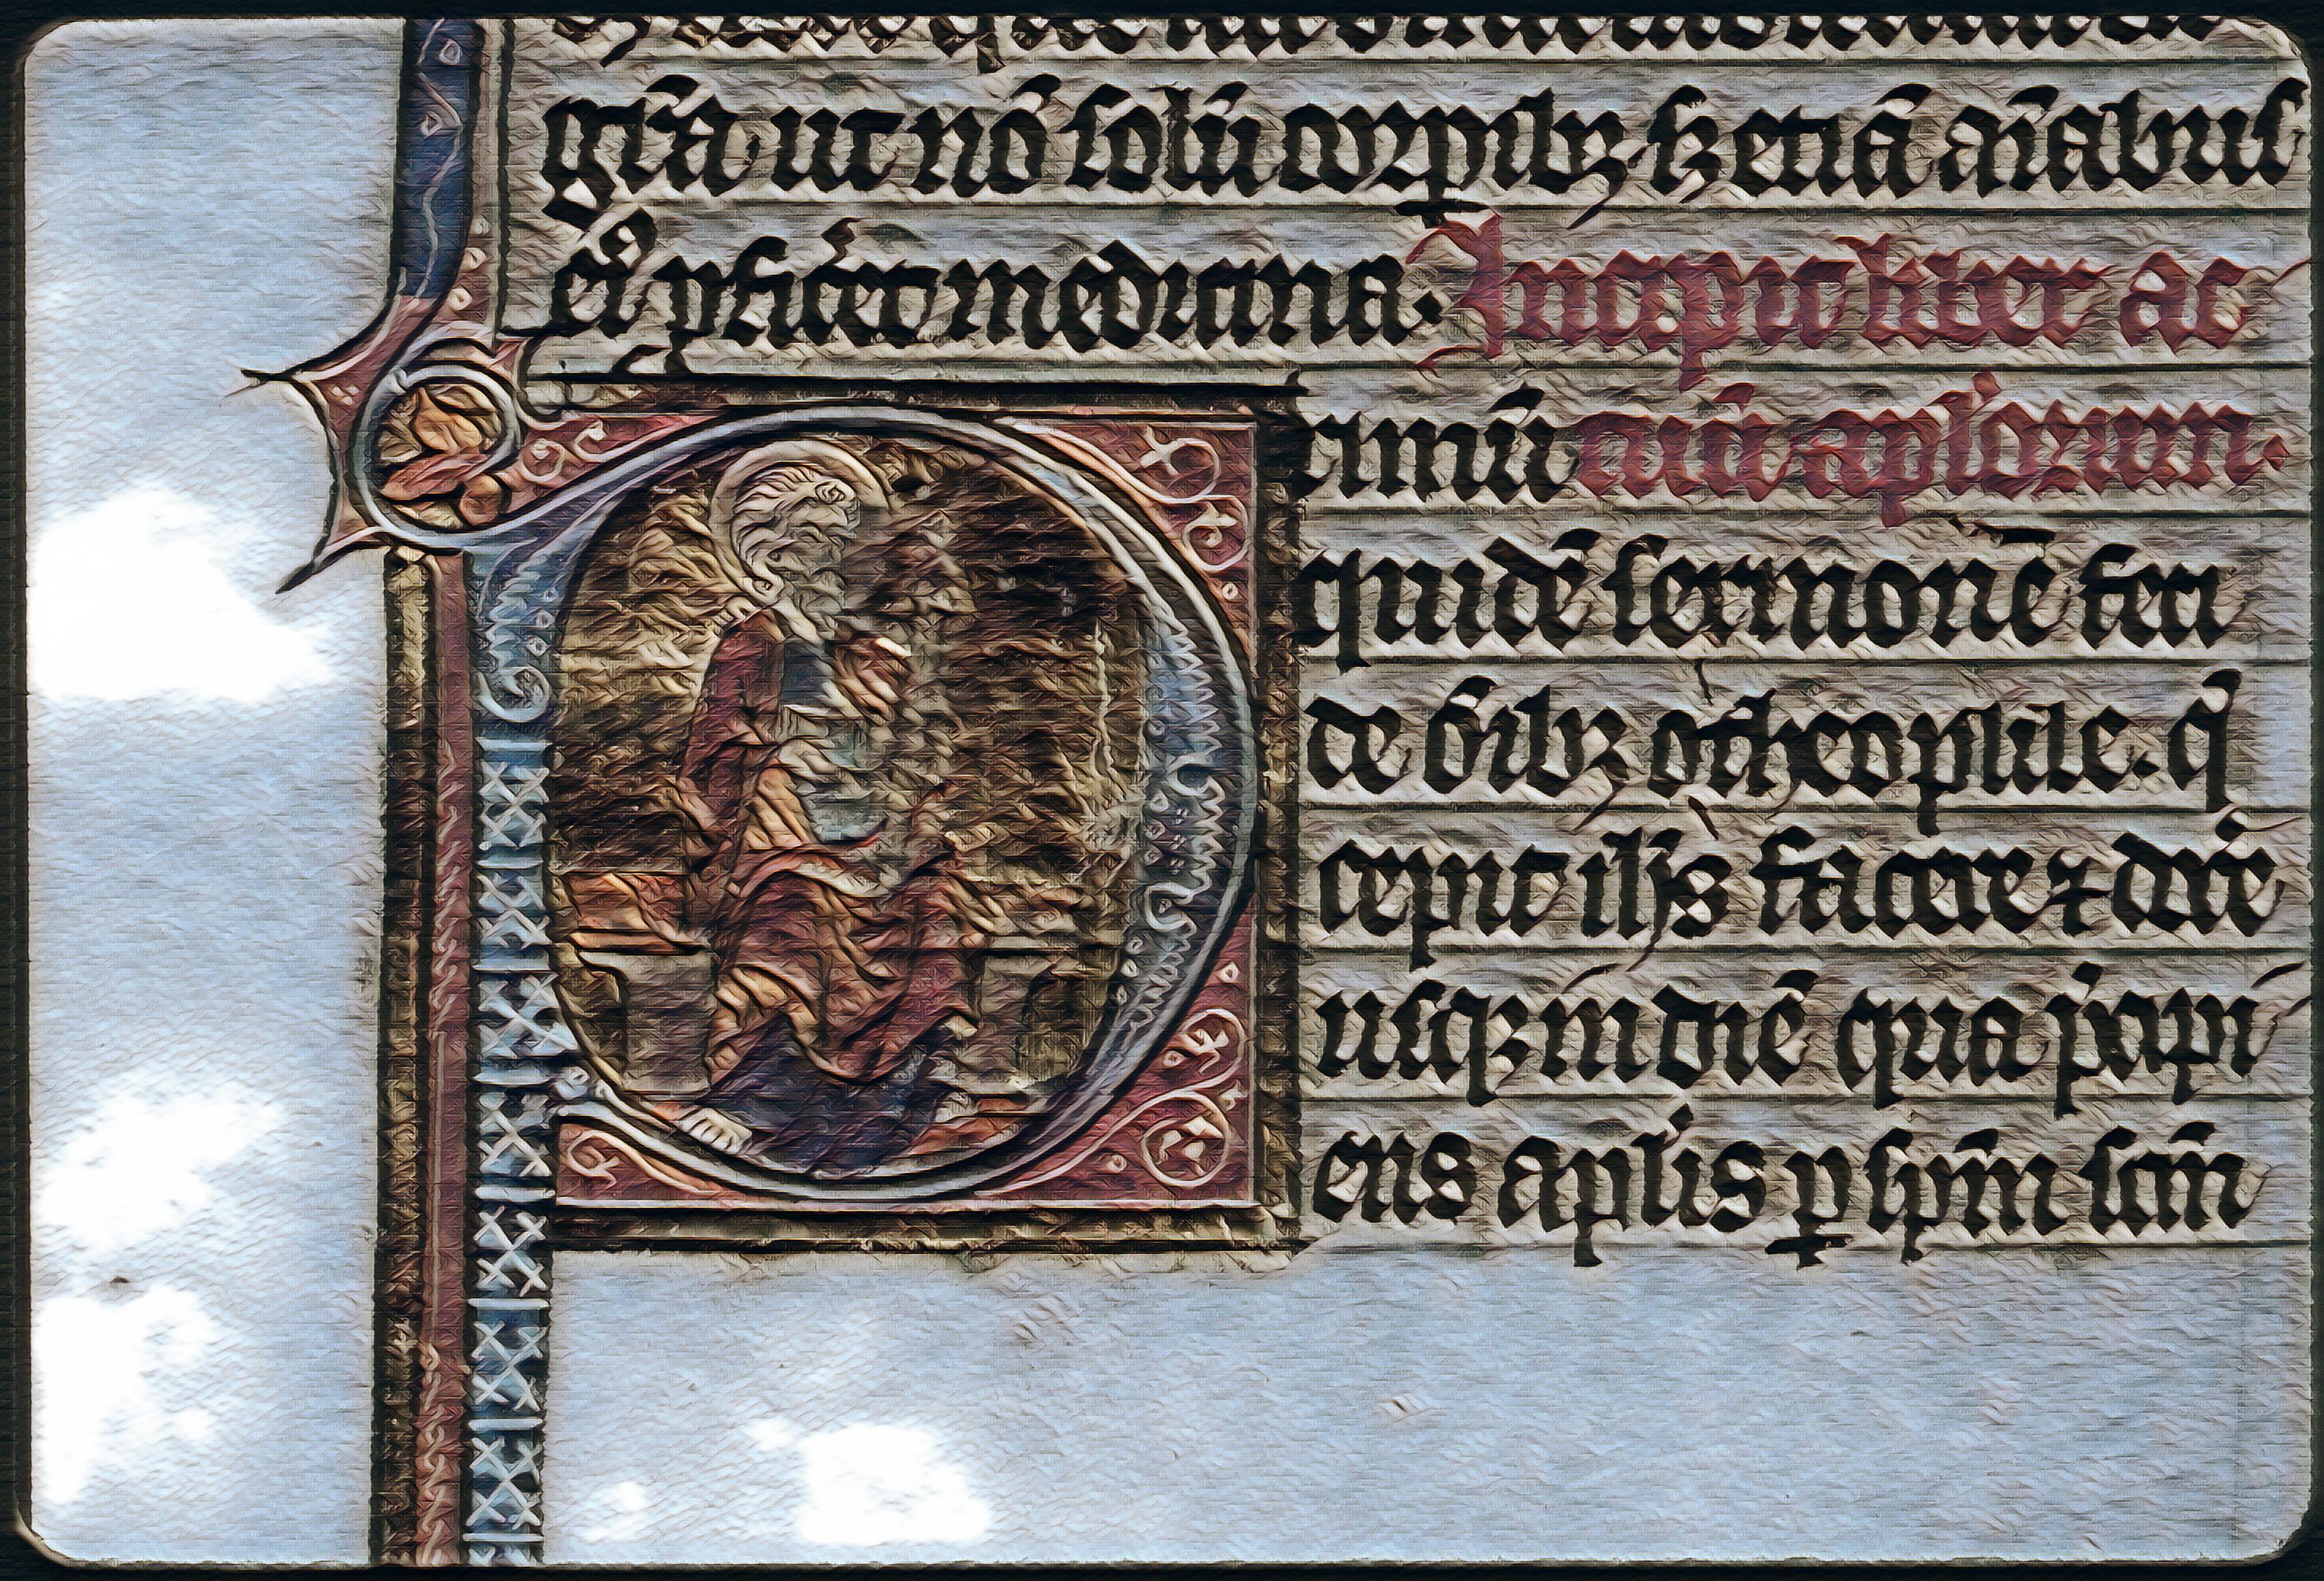 gr̄a ut nō solū corpibꝫ sꝫ etiā aīabus
eiꝰ ꝓficeret medicina. Incipit liber ac
rimū tuū apl'orum.
quidē sermonē feci
de oībꝫ o theophile. q
cepit ih's facere ⁊ dīce
usqꝫ in diē qua p̄cipi
ens apl'is ꝑ sp̄m sc̄m